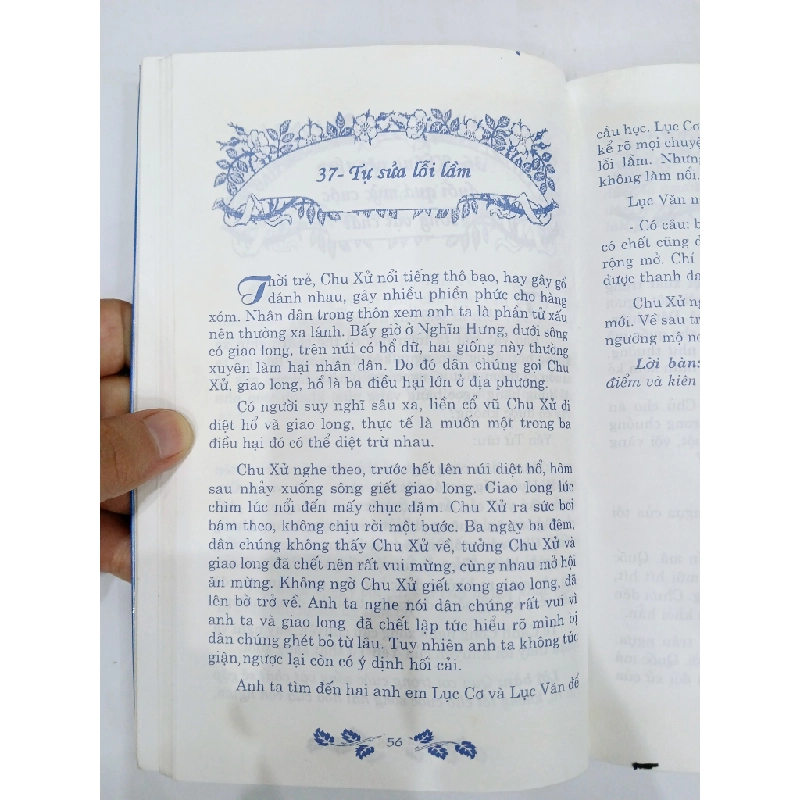 37- Tự sửa lỗi lầm
Thời trẻ, Chu Xử nổi tiếng thô bạo, hay gây gổ
đánh nhau, gây nhiều phiền phức cho hàng
xóm. Nhân dân trong thôn xem anh ta là phần tử xấu
nên thường xa lánh. Bấy giờ ở Nghĩa Hưng, dưới sông
có giao long, trên núi có hổ dữ, hai giống này thường
xuyên làm hại nhân dân. Do đó dân chúng gọi Chu
Xử, giao long, hổ là ba điều hại lớn ở địa phương.
Có người suy nghĩ sâu xa, liền cổ vũ Chu Xử đi
diệt hổ và giao long, thực tế là muốn một trong ba
điều hại đó có thể diệt trừ nhau.
Chu Xử nghe theo, trước hết lên núi diệt hổ, hôm
sau nhảy xuống sông giết giao long. Giao long lúc
chìm lúc nổi đến mấy chục dặm. Chu Xử ra sức bơi
bám theo, không chịu rời một bước. Ba ngày ba đêm,
dân chúng không thấy Chu Xử về, tưởng Chu Xử và
giao long đã chết nên rất vui mừng, cùng nhau mở hội
ăn mừng. Không ngờ Chu Xử giết xong giao long, đã
lên bờ trở về. Anh ta nghe nói dân chúng rất vui vì
anh ta và giao long đã chết lập tức hiểu rõ mình bị
dân chúng ghét bỏ từ lâu. Tuy nhiên anh ta không tức
giận, ngược lại còn có ý định hối cải.
Anh ta tìm đến hai anh em Lục Cơ và Lục Vân để
56
cầu học. Lục Cơ
kể rõ mọi chuyện
lỗi lầm. Nhưng
không làm nổi.
Lục Vân
- Có câu:
có chết cũng
rộng mở. Chỉ
được thanh
Chu Xử
mới. Về sau
ngưỡng mộ
Lời bàn:
điểm và kiên